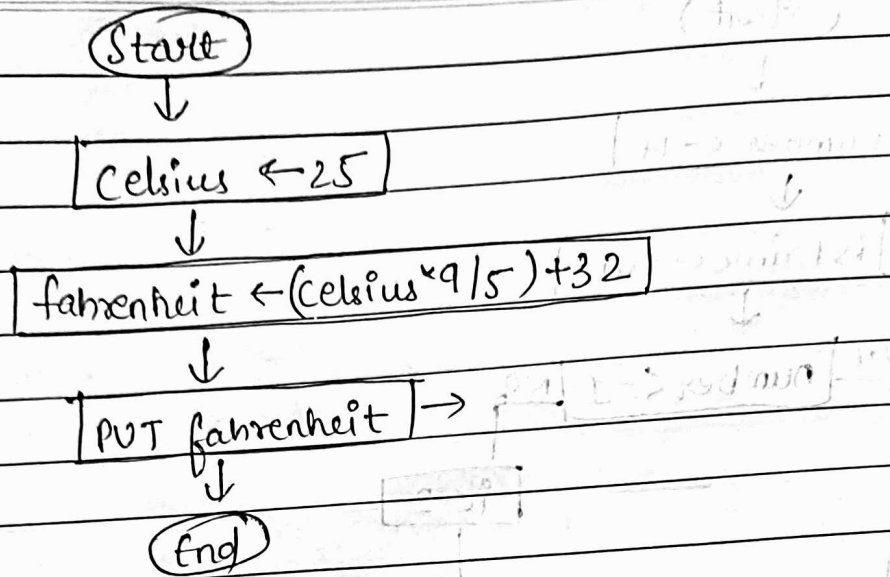 Start
↓
Celsius ← 25
↓
fahrenheit ← (Celsius*9/5)+32
↓
PUT fahrenheit →
↓
End